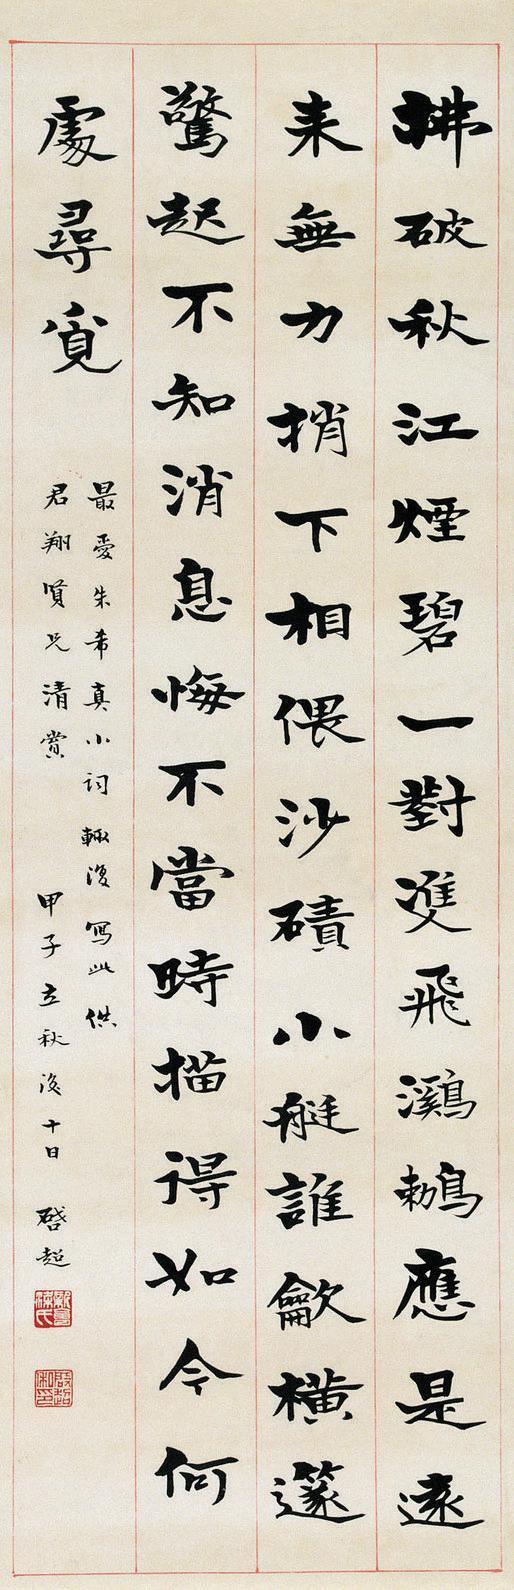 拂破秋江煙碧一對雙飛鸂鶒應是遠
来無力捎下相偎沙磧小艇誰龡橫篴
驚起不知消息悔不當時描得如今何
處尋覓
最愛朱希真小詞輙復寫此供
君翔賢兄清賞
甲子立秋後十日
啓超